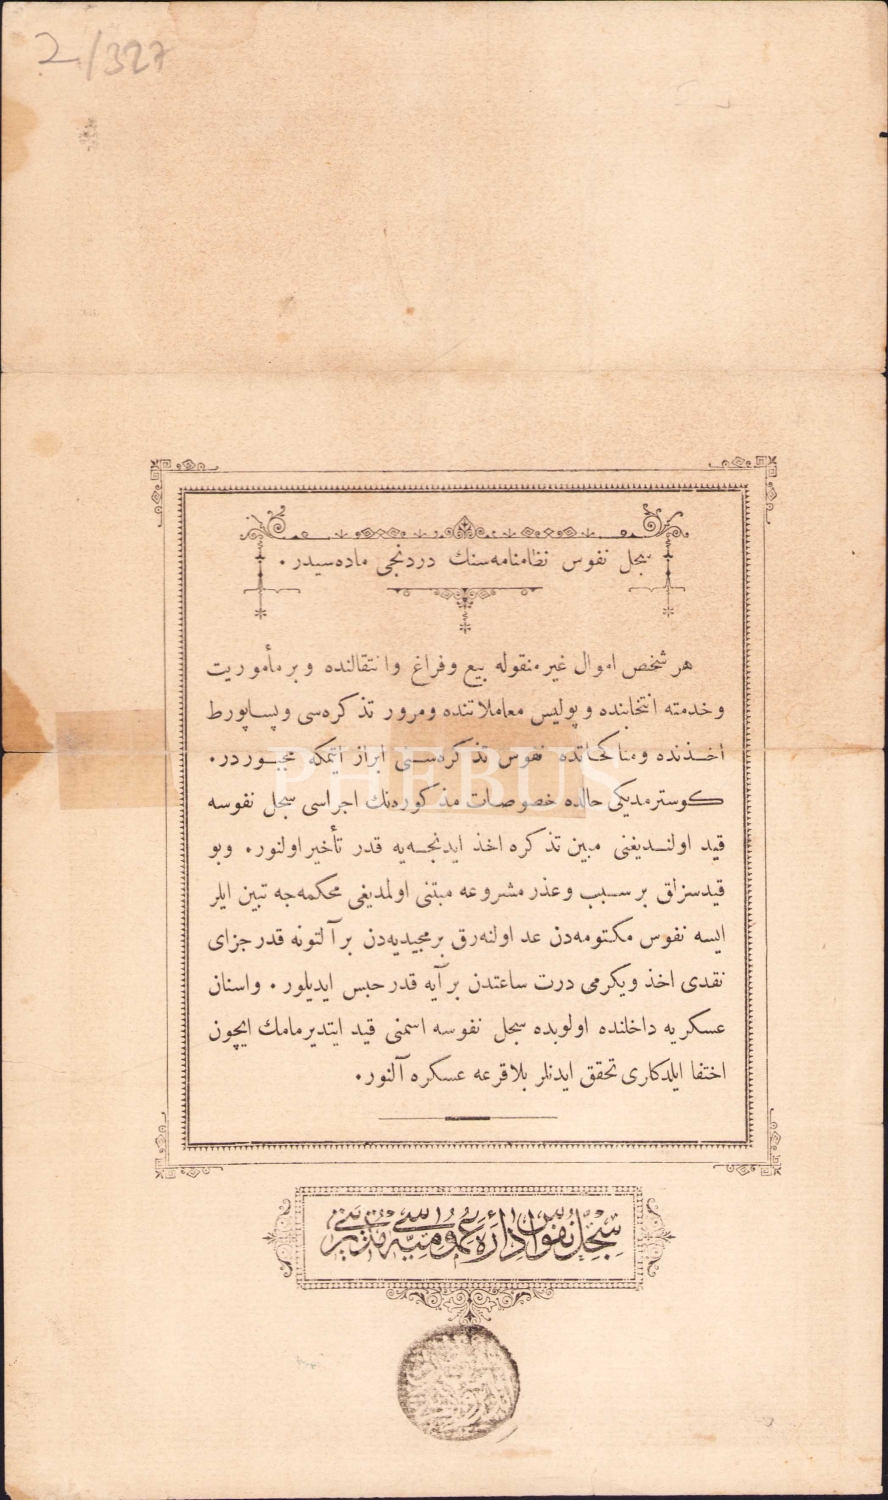 2/327
سجل نفوس نظامنامه‌سنك دردنجی ماده‌سیدر .
هر شخص اموال غیر منقوله بیع وفراغ وانتقالنده وبر مأموریت
وخدمته انتخابنده وپولیس معاملاتنده ومرور تذكره‌سی وپساپورط
اخذنده ومناكحاتده نفوس تذكره‌سنی ابراز ایتمكه مجبوردر .
كوسترمدیكی حالده خصوصات مذكوره‌نك اجراسی سجل نفوسه
قید اولندیغنی مبین تذكره اخذ ایدنجه‌یه قدر تأخیر اولنور . وبو
قیدسزلق بر سبب وعذر مشروعه مبتنی اولمدیغی محكمه‌جه تبین ایلر
ایسه نفوس مكتومه‌دن عد اولنه‌رق بر مجیدیه‌دن بر آلتونه قدر جزای
نقدی اخذ ویكرمی درت ساعتدن بر آیه قدر حبس ایدیلور . واسنان
عسكریه داخلنده اولوبده سجل نفوسه اسمنی قید ایتدیرمامك ایچون
اختفا ایلدكلری تحقق ایدنلر بلاقرعه عسكره آلنور .
PHEBUS
سجل نفوس اداره عمومیه‌سی مدیریتی